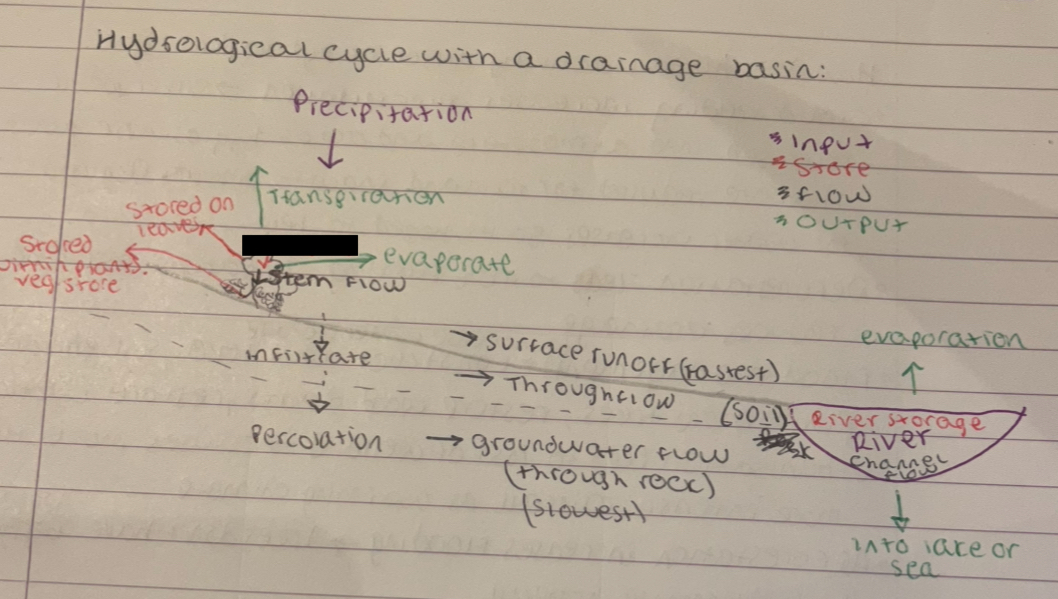 Hydrological cycle with a drainage basin:
Precipitation
* Input
* Store
* Flow
* Output
Transpiration
stored on
leaves
Stored
plants.
veg store
evaporate
Stem flow
infiltrate
surface runoff (fastest)
Throughflow
(soil)
Percolation
groundwater flow
(through rock)
(slowest)
evaporation
River storage
River
channel
flow
into lake or
sea